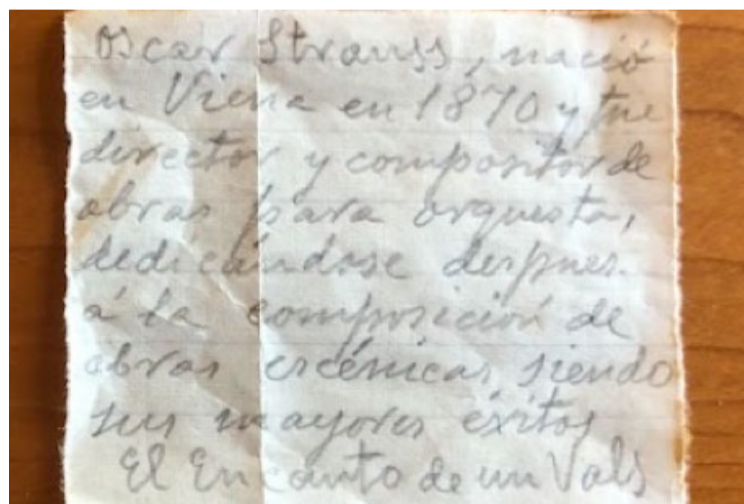 Oscar Strauss, nació
en Viena en 1870 y fue
director y compositor de
obras para orquesta,
dedicándose despues
á la composición de
obras escénicas siendo
sus mayores éxitos
El Encanto de un Vals